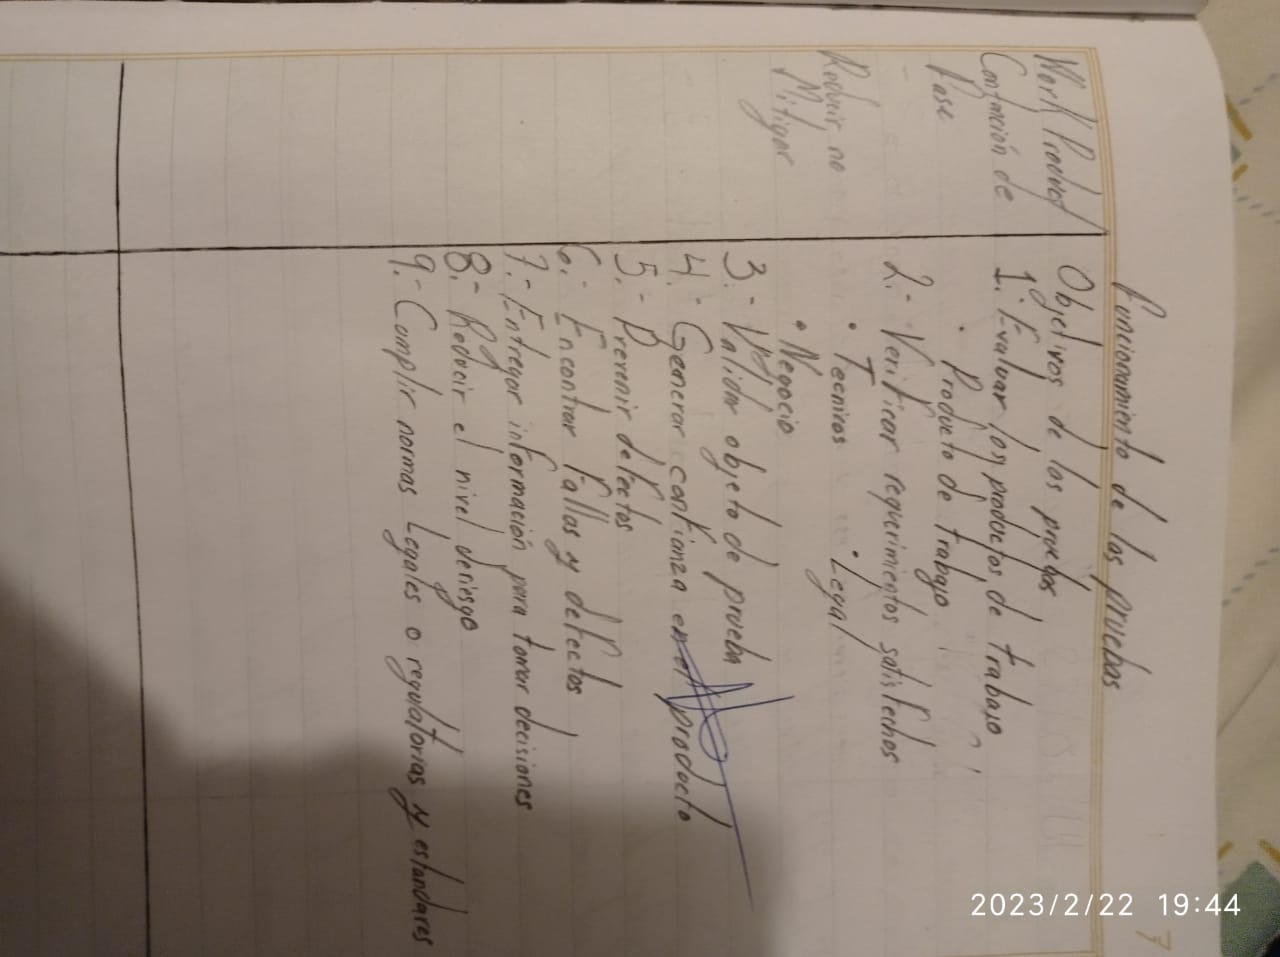 2023/2/22 19:44
7
Funcionamiento de las pruebas
Work Product
Contanción de
Fase
Reducir, no
Mitigar
Objetivos de las pruebas
1.- Evaluar los productos de trabajo
· Producto de trabajo
2.- Verificar requerimientos satisfechos
· Tecnicos · Legal
· Negocio
3.- Validar objeto de prueba
4.- Generar confianza en el producto
5.- Prevenir defectos
6.- Encontrar Fallas y defectos
7.- Entregar información para tomar decisiones
8.- Reducir el nivel de riesgo
9.- Cumplir normas Legales o regulatorias y estandares